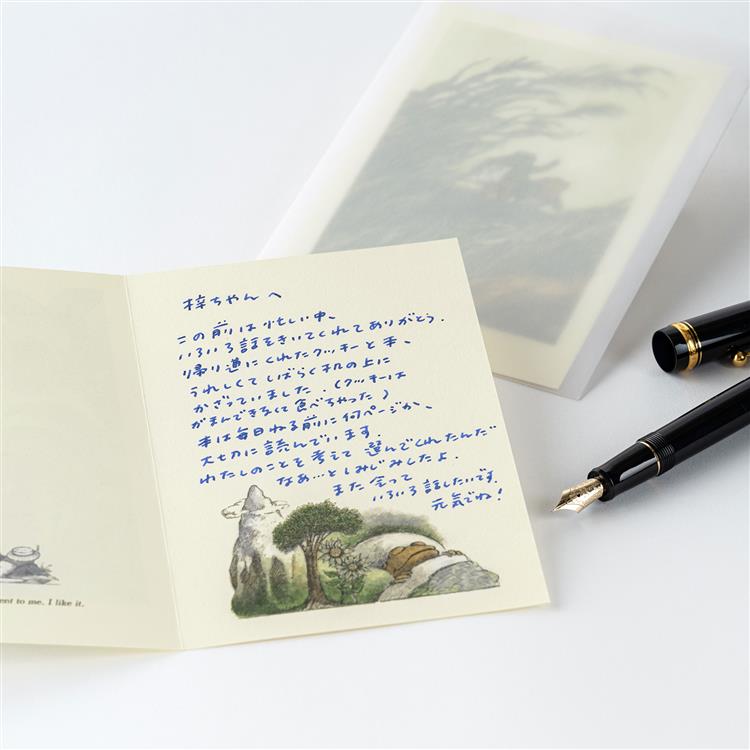 梓ちゃんへ
この前は忙しい中、
いろいろ話をきいてくれてありがとう.
帰り道にくれたクッキーと本、
うれしくてしばらく机の上に
かざっていました.(クッキーは
がまんできなくて食べちゃった)
本は毎日ねる前に何ページか、
大切に読んでいます.
わたしのことを考えて 選んでくれたんだ
なあ…としみじみしたよ.
また会って
いろいろ話したいです.
元気でね!
ent to me. I like it.